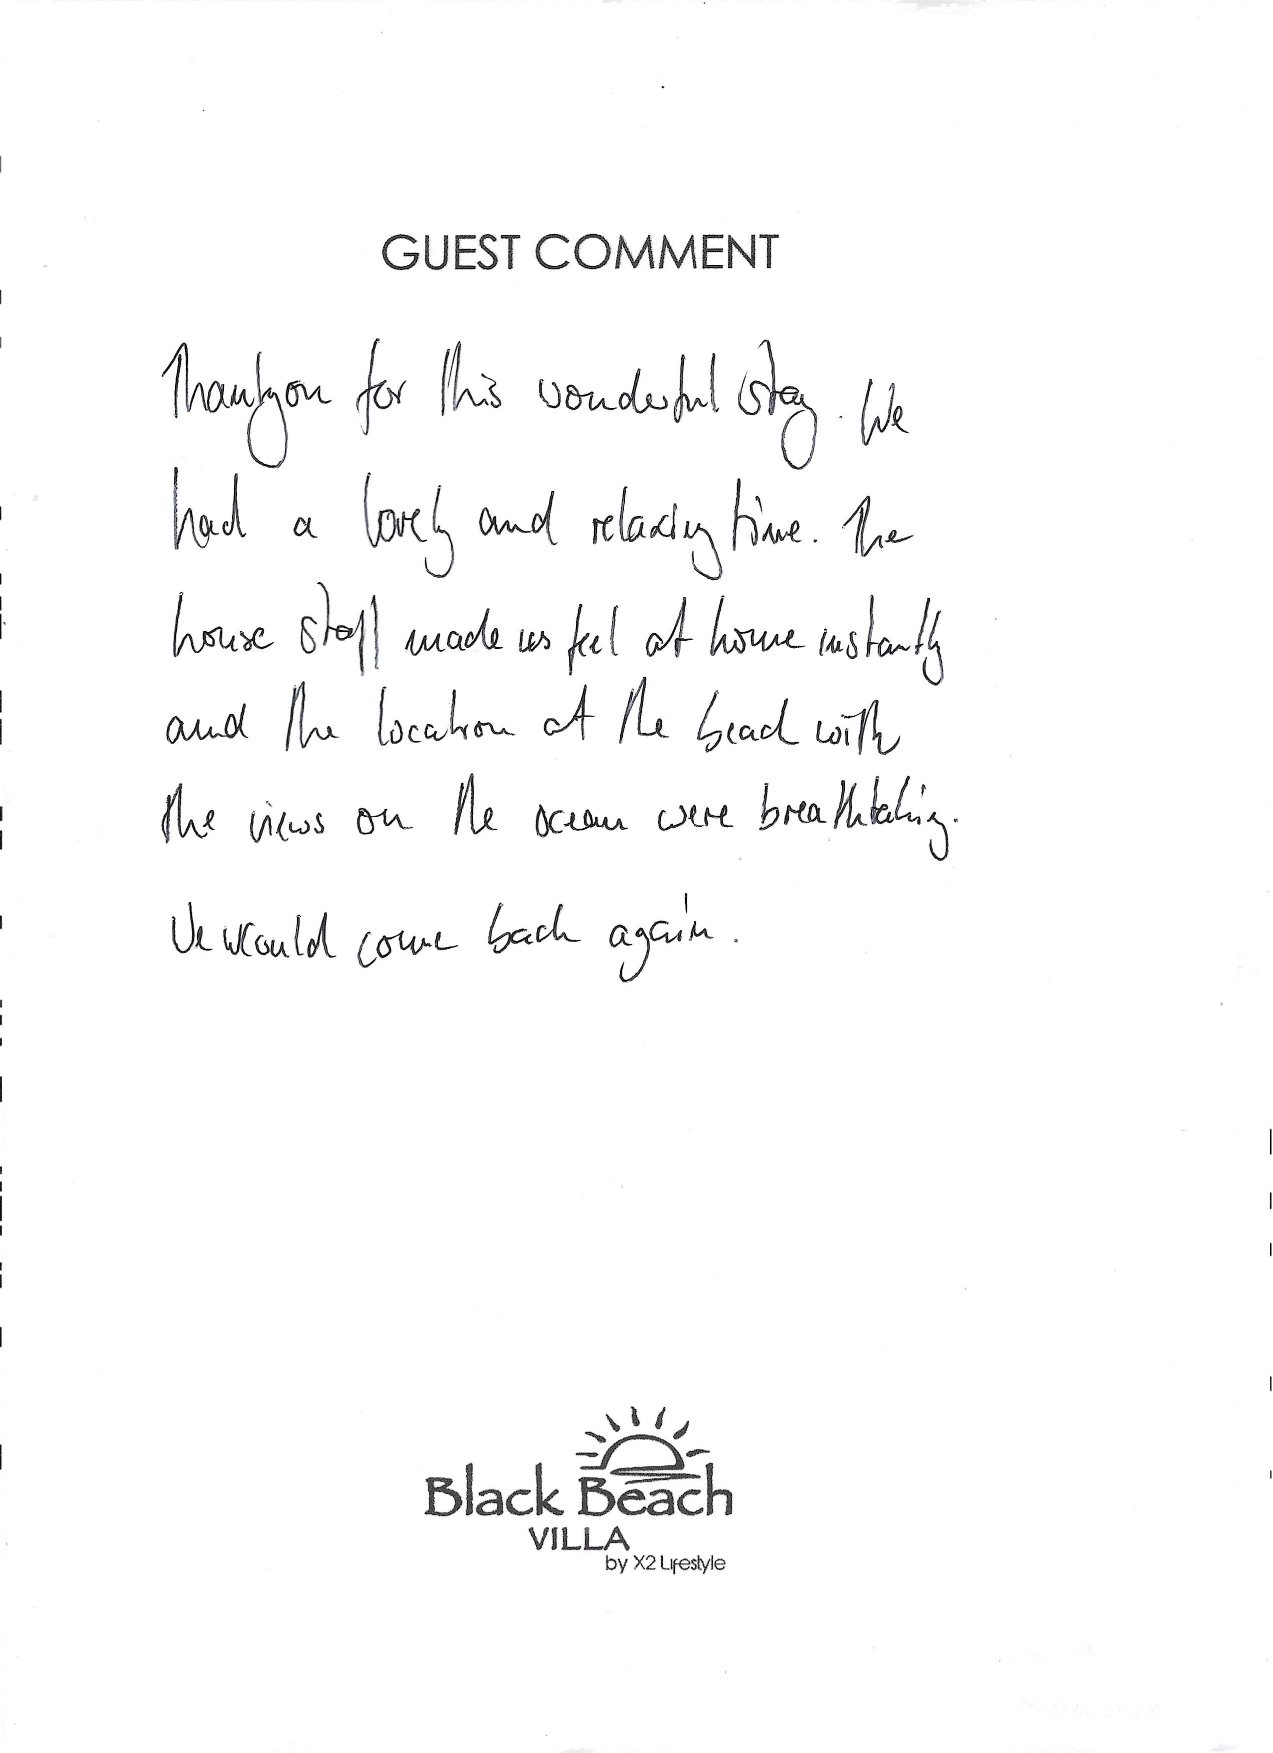 GUEST COMMENT
Thankyou for this wonderful stay. We
had a lovely and relaxing time. The
house staff made us feel at home instantly
and the location at the beach with
the views on the ocean were breathtaking.
We would come back again.
Black Beach
VILLA
by X2 Lifestyle